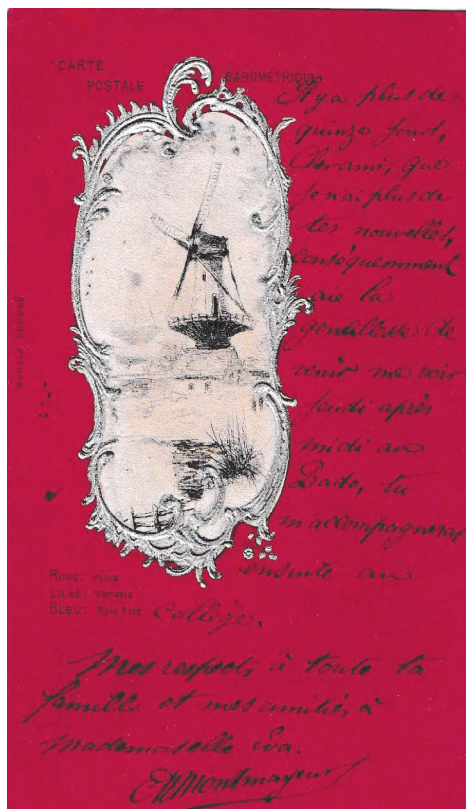 CARTE
POSTALE BAROMÉTRIQUE
Il y a plus de
quinze jours,
Cher ami, que
je n'ai plus de
tes nouvelles,
conséquemment
aie la
gentillesse de
venir me voir
jeudi après
midi au
tu
m'accompagneras
ensuite au
collège.
ROSE: PLUIE
LILAS: VARIABLE
BLEU: BEAU FIXE
Mes respects à toute ta
famille et mes amitiés à
Mademoiselle Eva.
Montmayeur